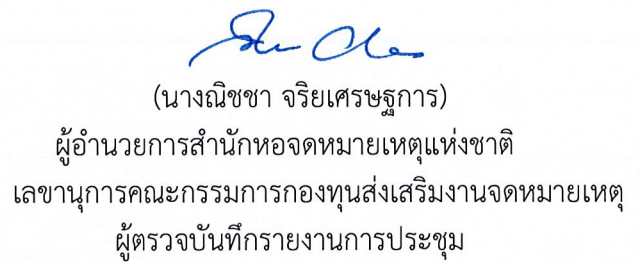 (นางณิชชา จริยเศรษฐการ)
ผู้อำนวยการสำนักหอจดหมายเหตุแห่งชาติ
เลขานุการคณะกรรมการกองทุนส่งเสริมงานจดหมายเหตุ
ผู้ตรวจบันทึกรายงานการประชุม